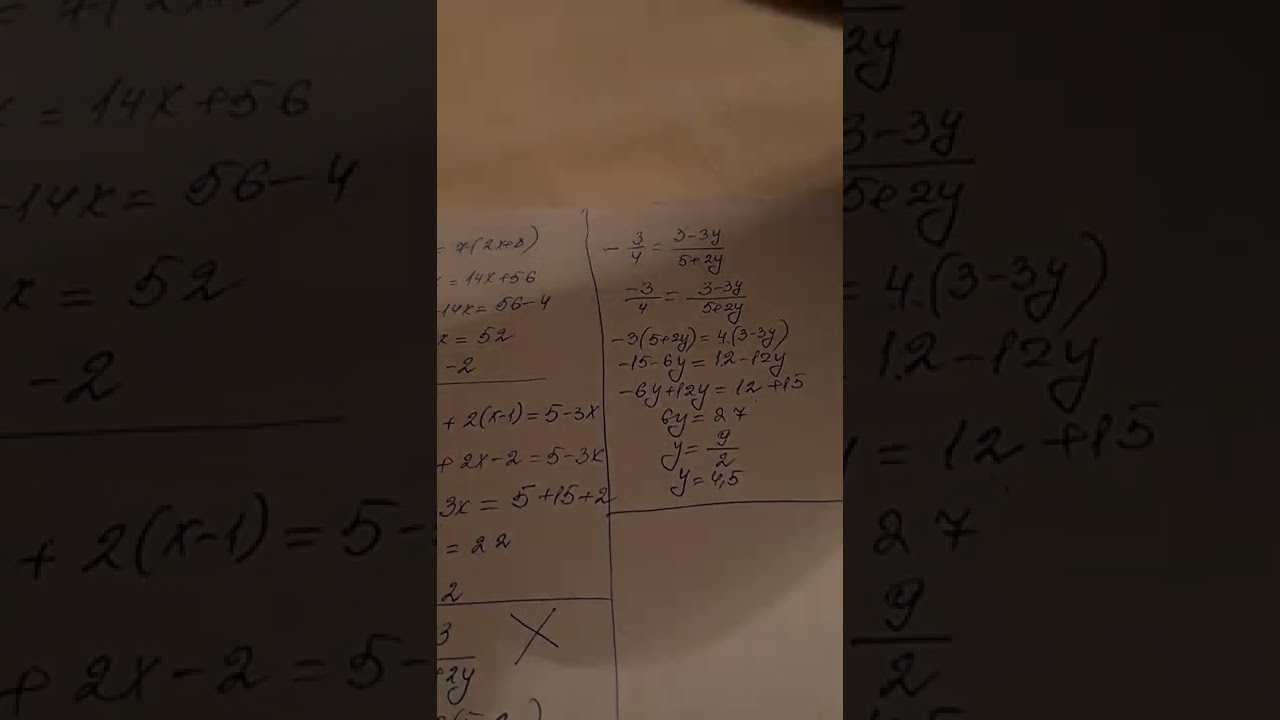 = 7(2x+8)
= 14x+56
-14x = 56-4
x = 52
-2
+ 2(x-1) = 5-3x
+ 2x-2 = 5-3x
3x = 5+15+2
= 22
2
3
+2y
- 3/4 = 3-3y/5+2y
-3/4 = 3-3y/5+2y
-3(5+2y) = 4.(3-3y)
-15-6y = 12-12y
-6y+12y = 12+15
6y = 27
y = 9/2
y = 4,5